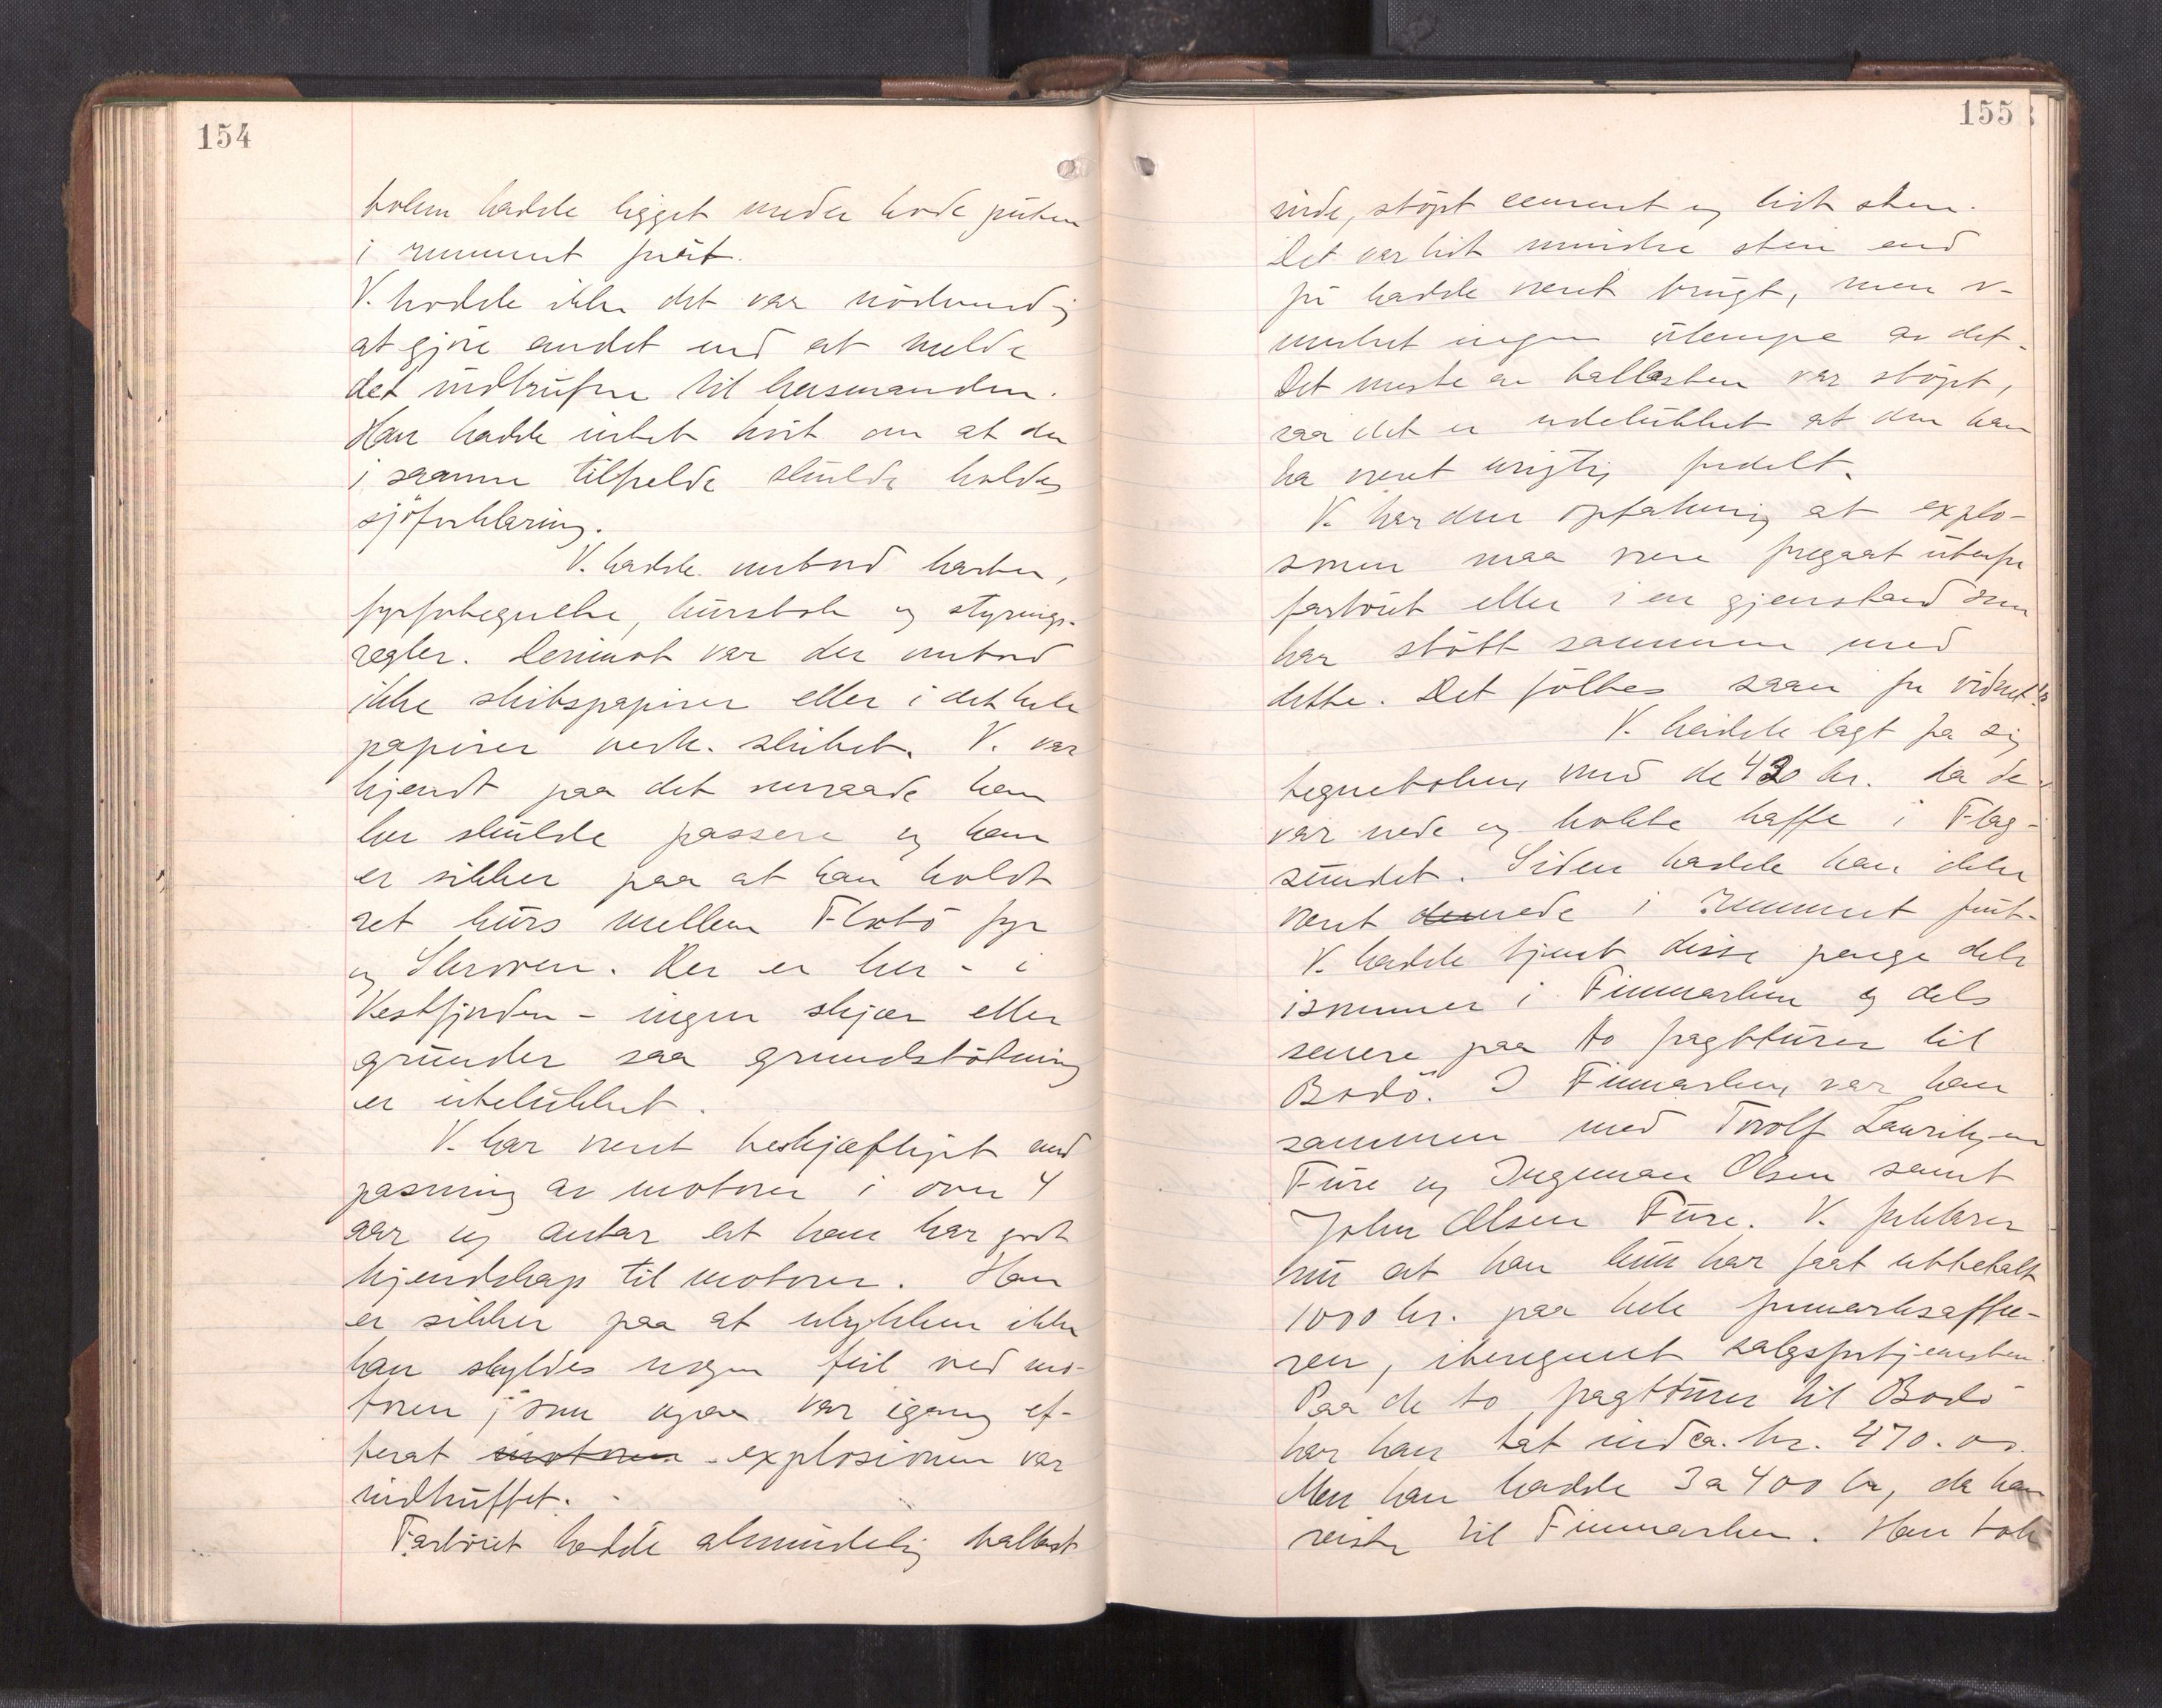 154
boken hadde ligget under hode puten
i rummet forut.
V. trodde ikke det var nödvendig
at gjöre andet end at melde
det indtrufne til lensmanden.
Han hadde intet hört om at der
i saanne tilfelde skulde holdes
sjöforklaring.
V. hadde ombord karter,
fyrfortegnelse, kursbok og styrings-
regler. Derimot var der ombord
ikke skibspapirer eller i det hele
papirer vedk. skibet. V. var
kjendt paa det omraade han
her skulde passere og han
er sikker paa at han holdt
ret kurs mellem Flatö fyr
og Skroven. Der er her - i
Vestfjorden - ingen skjær eller
grunder saa grundstötning
er utelukket.
V. har veret beskjæftiget med
pasning av motorer i over 4
aar og antar at han har godt
kjendskap til motorer. Han
er sikker paa at ulykken ikke
kan skyldes nogen feil ved mo-
toren, som ogsaa var igang ef-
terat motoren explosionen var
indtruffet.
Fartöiet hadde almindelig ballast
155
inde, stöpt cement og lidt sten.
Det var lidt mindre sten end
för hadde veret brugt, men v.
merket ingen ulempe av det.
Det meste av ballasten var stöpt,
saa det er udelukket at den kan
ha veret urigtig fordelt.
V. har den opfatning at explo-
sionen maa vere foregaat utenfor
fartöiet eller i en gjenstand som
har stött sammen med
dette. Det föltes saan for vidnet.
V. hadde lagt fra sig
tegneboken med de 420 kr. da de
var nede og kokte kaffe i Flag-
sundet. Siden hadde han ikke
veret nede i rummet forut.
V. hadde tjent disse penge dels
isommer i Finmarken og dels
senere paa to fragtturer til
Bodö. I Finmarken var han
sammen med Torolf Lauritsen
Fure og Ingeman Olsen samt
John Olsen Fure. V. forklarer
nu at han kun har faat utbetalt
1000 kr. paa hele finmarksaffæ-
ren, iberegnet salgsfortjenesten.
Paa de to fragtturer til Bodö
har han tat ind ca. kr. 470.00.
Men han hadde 3 a 400 kr, da han
reiste til Finmarken. Han tok